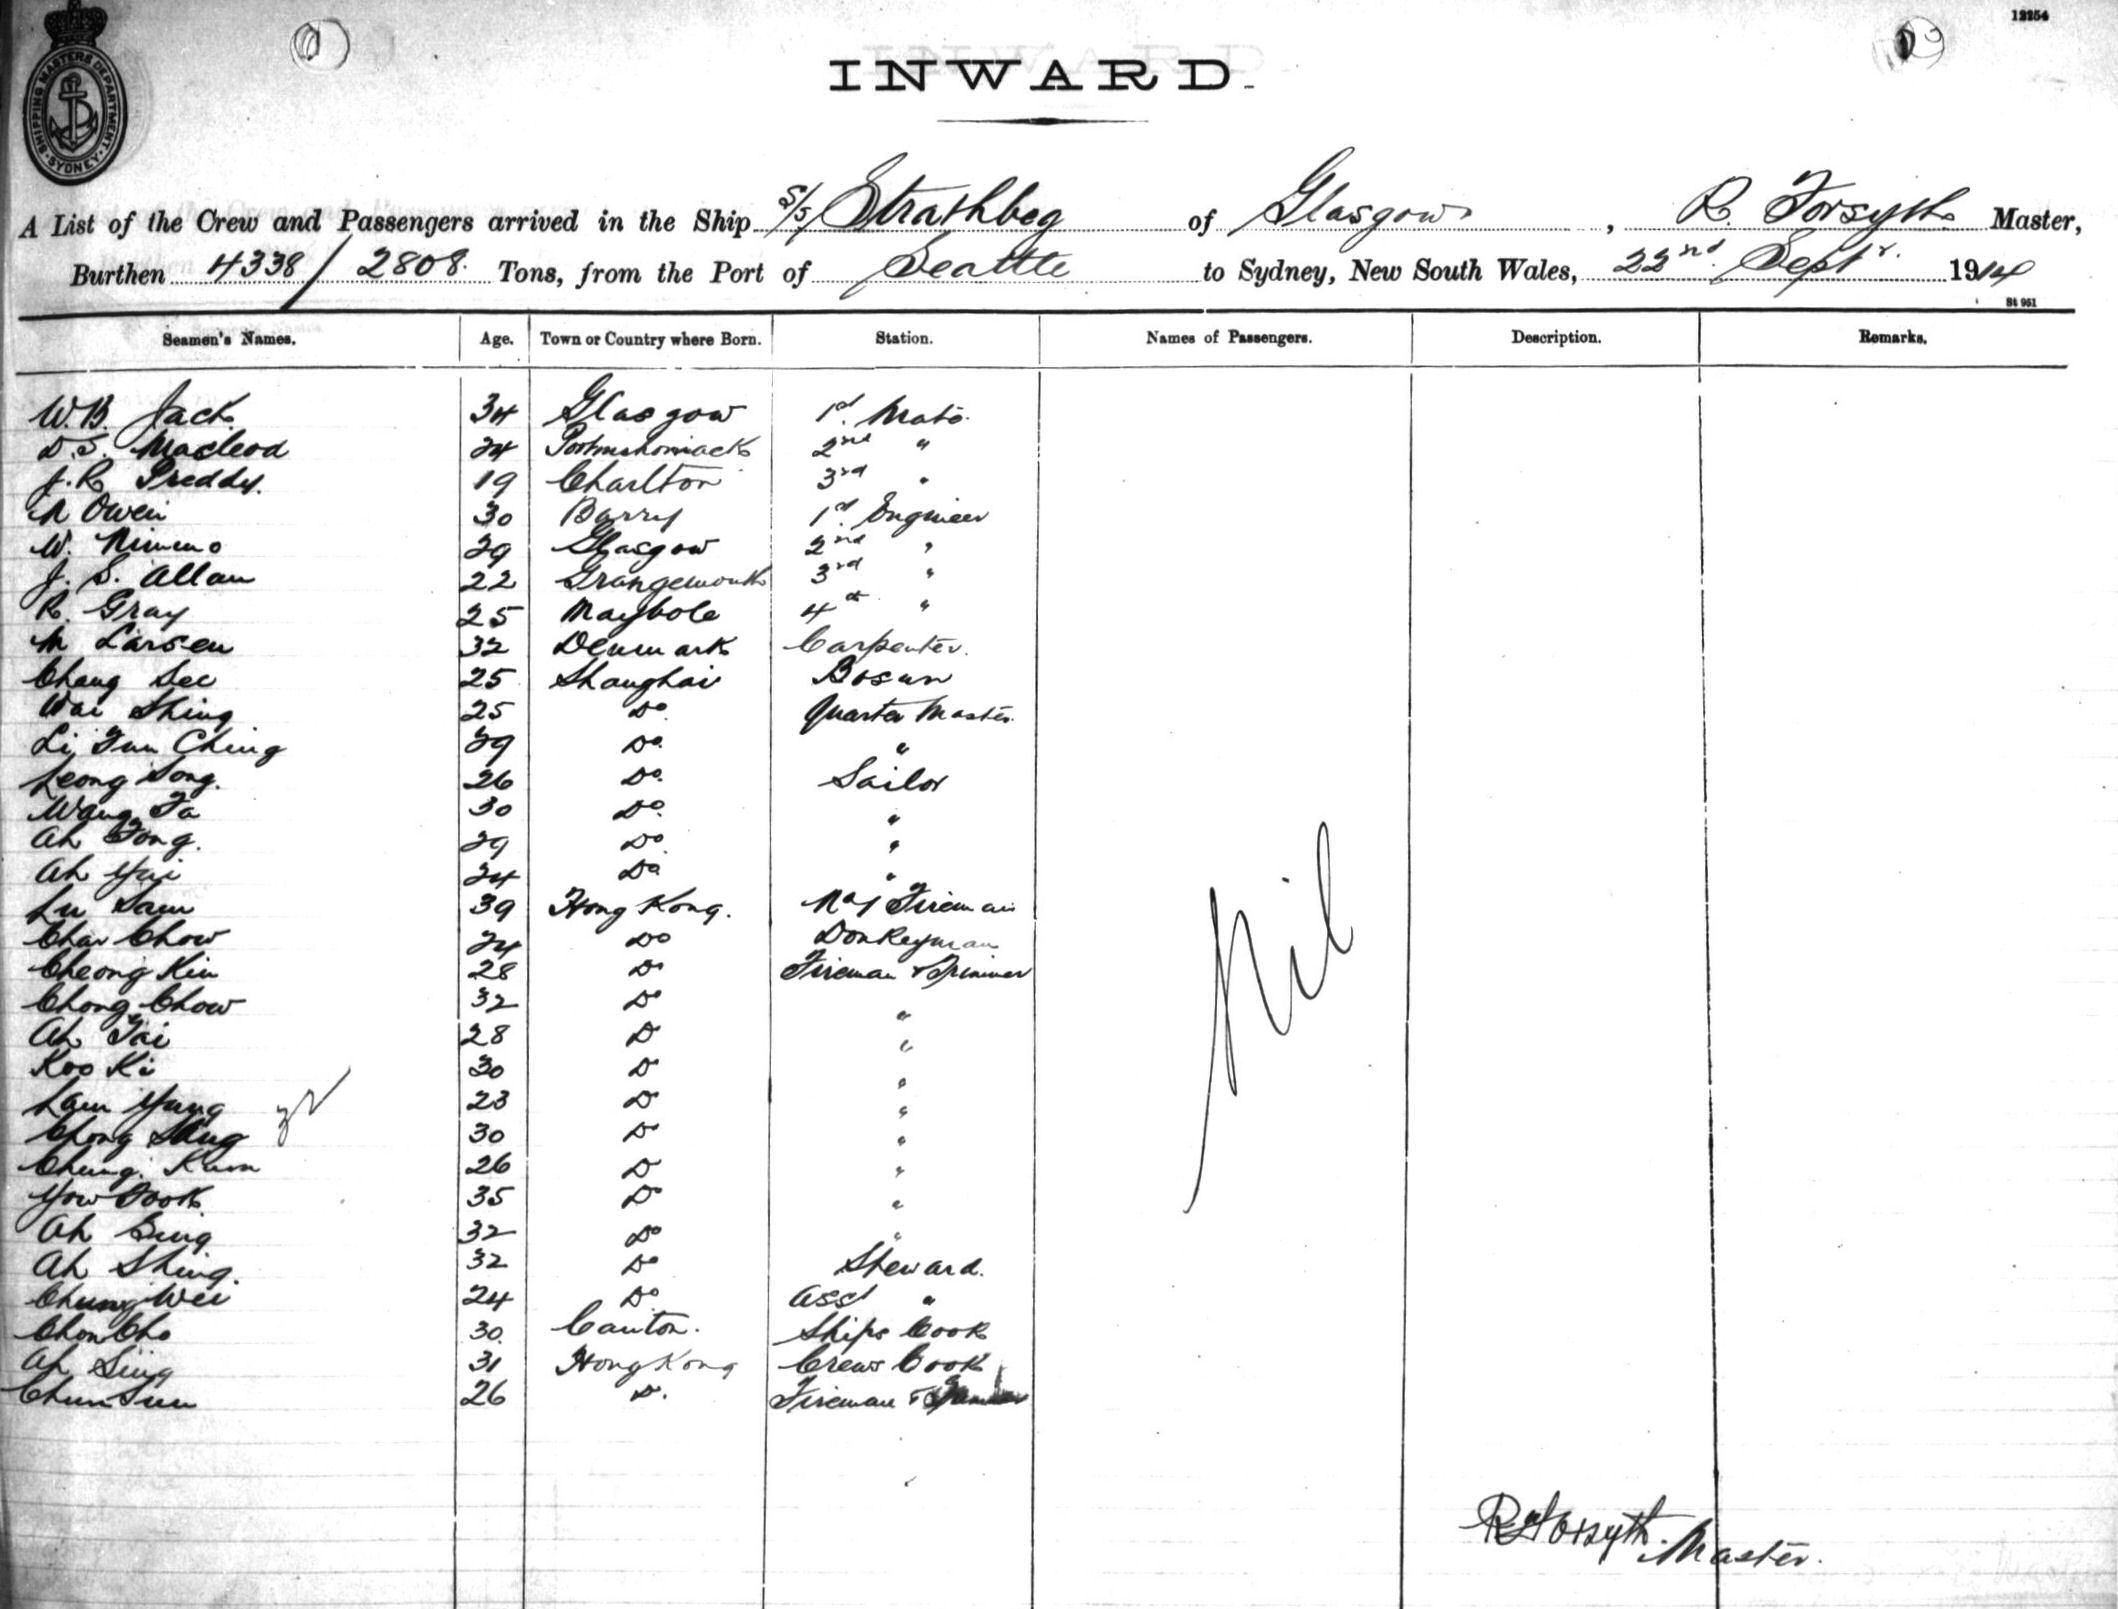 12254
SHIPPING MASTERS DEPARTMENT
SYDNEY
INWARD.
A List of the Crew and Passengers arrived in the Ship S/S Strathbeg of Glasgow, R. Forsyth Master,
Burthen 4338/2808 Tons, from the Port of Seattle to Sydney, New South Wales, 22nd Septr. 1914
St 951
Seamen's Names. Age. Town or Country where Born. Station. Names of Passengers. Description. Remarks.
W. B. Jack 34 Glasgow 1st Mate
D. S. Macleod 24 Portmahomack 2nd "
J. R. Preddy. 19 Charlton 3rd "
N Owen 30 Barry 1st Engineer
W. Nimmo 29 Glasgow 2nd "
J. S. Allan 22 Grangemouth 3rd "
R. Gray 25 Maybole 4th "
M Larsen 32 Denmark Carpenter.
Chang See 25 Shanghai Bosun
Wai Shing 25 Do Quarter Master.
Li Fun Ching 29 Do. "
Leong Song. 26 Do. Sailor
Wang Fa 30 Do. "
Ah Fong. 29 Do. "
Ah Yui 24 Do "
Lu Sam 39 Hong Kong. No 1 Fireman
Char Chow 24 Do Donkeyman
Cheong Kin 28 Do Fireman & Trimmer
Chong Chow 32 Do "
Ah Tai 28 Do "
Koo Ki 30 Do "
Lam Yung 23 Do "
32
Chong Shing 30 Do "
Chung Kum 26 Do "
Yow Fook 35 Do "
Ah Bing 32 Do "
Ah Shing. 32 Do Steward.
Chung Wei 24 Do Asst "
Chon Cho 30. Canton. Ships Cook
Ah Sing 31 Hong Kong Crews Cook
Chun Sun 26 Do. Fireman & Trimmer
Nil
R Forsyth. Master.